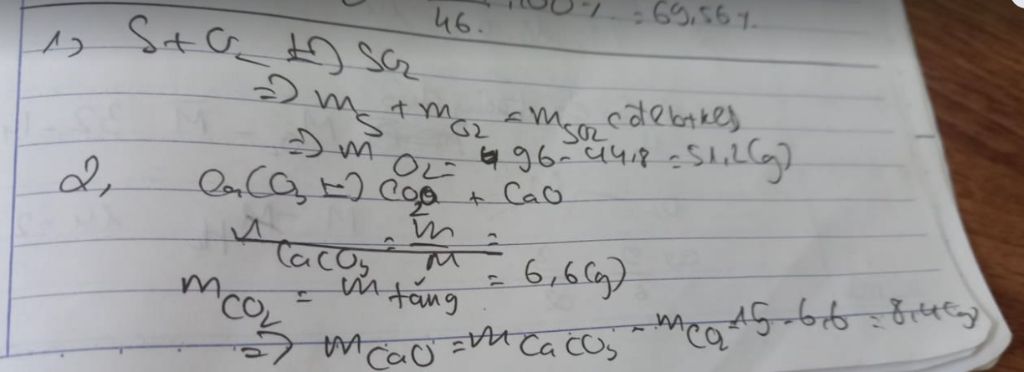 46. .100% = 69,56%
1, S + O2 t→ SO2
⇒ mS + mO2 = mSO2 (ĐLBTKL)
⇒ m O2 = 96 - 44,8 = 51,2 (g)
2, CaCO3 t→ CO2 + CaO
n CaCO3 = m/M =
mCO2 = m tăng = 6,6 (g)
⇒ mCaO = mCaCO3 - mCO2 = 15 - 6,6 = 8,4 (g)